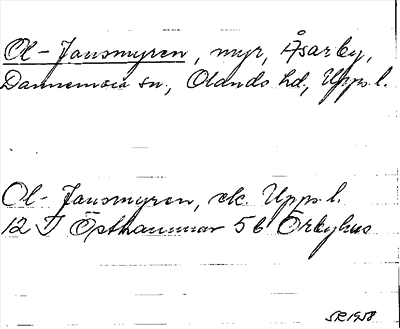 Ol-Jansmyren, myr, Åsarby,
Dannemora sn, Olands hd, Upps. l.
Ol-Jansmyren, ek. Upps. l.
12 I Östhammar 5b Örbyhus
SR 1958